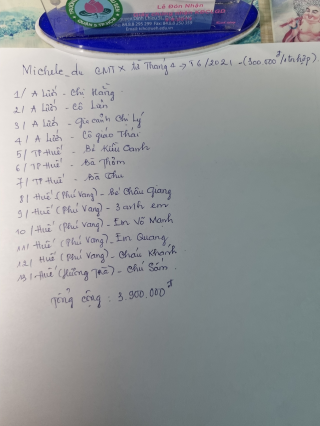 Lê Đàn Nhân
Michele_du CMT x từ Tháng 2 → T6/2021 - (300.000đ/1th/hộp)
1/ A Lưới - Chị Hằng
2/ A Lưới - Cô Lan
3/ A Lưới - Gia cảnh Chí Lý
4/ A Lưới - Cô giáo Thái
5/ TP Huế - Bé Kiều Oanh
6/ TP Huế - Bà Thơm
7/ TP Huế - Bà Thu
8/ Huế (Phú Vang) - Bé Châu Giang
9/ Huế (Phú Vang) - 3 anh em
10/ Huế (Phú Vang) - Em Võ Mạnh
11/ Huế (Phú Vang) - Em Quang
12/ Huế (Phú Vang) - Cháu Khánh
13/ Huế (Hương Trà) - Chú Sám
Tổng cộng : 3.900.000đ